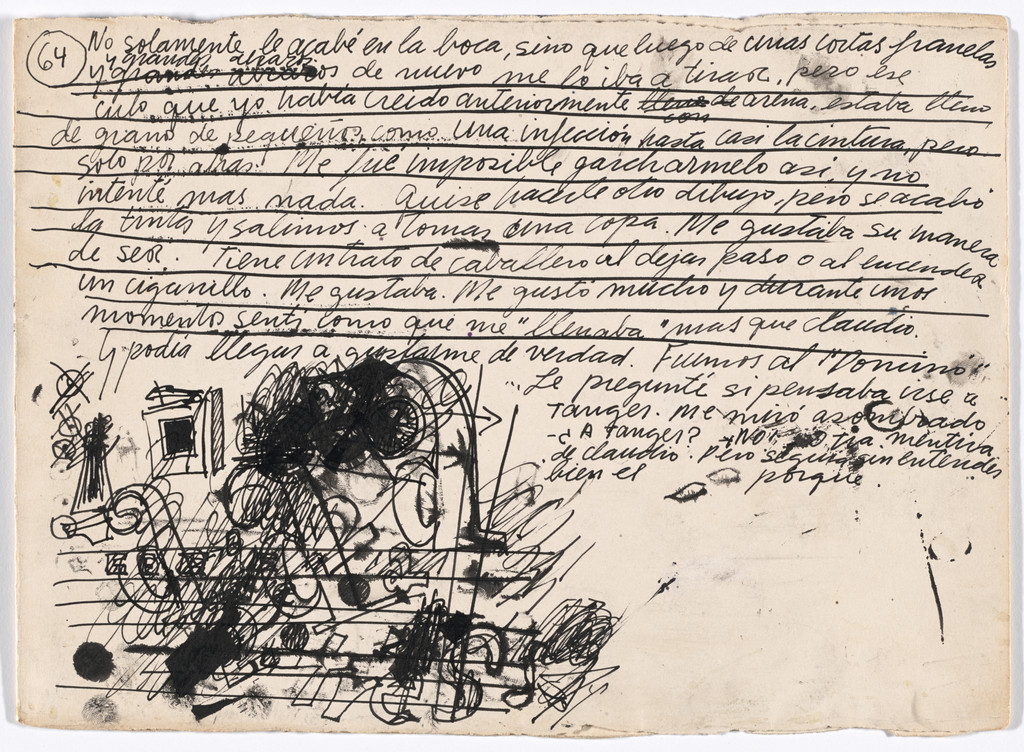 64
No solamente le acabé en la boca, sino que luego de unas cortas franelas
y grandes abrazos de nuevo me lo iba a tirar, pero ese
culo que yo había creido anteriormente con arena, estaba lleno
de grano de pequeños como una infección hasta casi la cintura, pero
solo por atras. Me fué imposible garcharmelo asi, y no
intenté mas nada. Quise hacerle otro dibujo, pero se acabó
la tinta y salimos a tomar una copa. Me gustaba su manera
de ser. Tiene un trato de caballero al dejar paso o al encender
un cigarrillo. Me gustaba. Me gustó mucho y durante unos
momento sentí como que me "llenaba" mas que claudio.
y podia llegar a gustarme de verdad. Fuimos al "Domino"
Le pregunté si pensaba irse a
Tanger. Me miró asombrado
-¿A Tanger? Nor mentira
de claudio. Pero seguia sin entender
bien el porque.